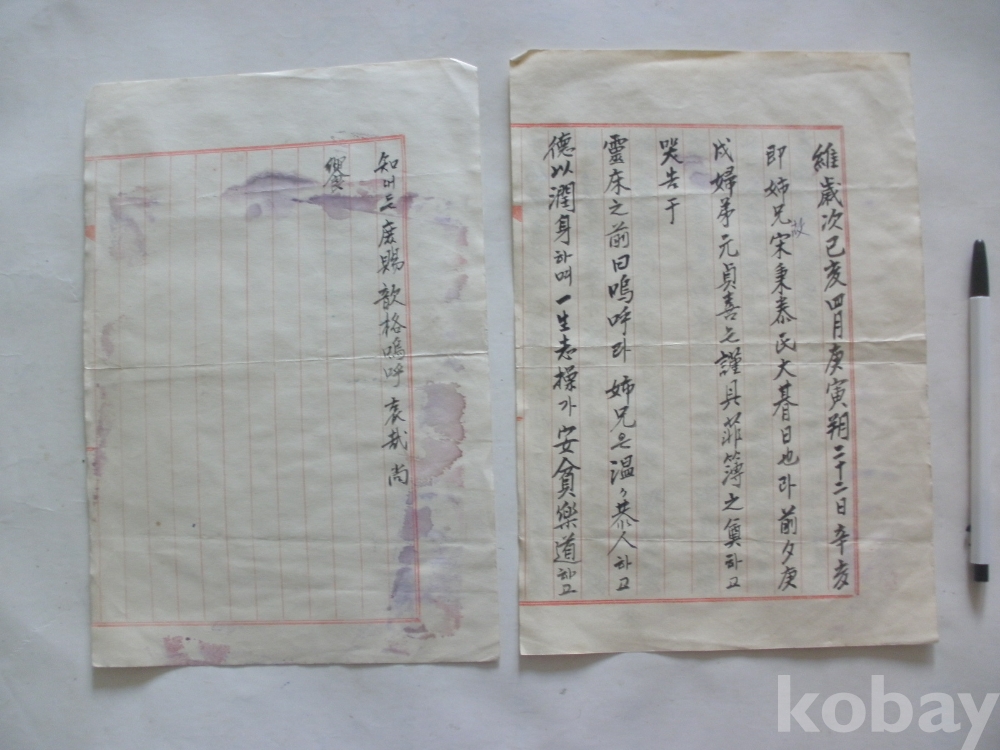 維歲次己亥四月庚寅朔二十二日辛亥
即姉兄故宋秉泰氏大朞日也라前夕庚
戌婦弟元貞喜는謹具菲薄之奠하고
哭告于
靈床之前曰嗚呼라 姉兄은溫々恭人하고
德以潤身하며一生志操가安貧樂道하고
知어든庶賜歆格嗚呼哀哉尙
饗
kobay